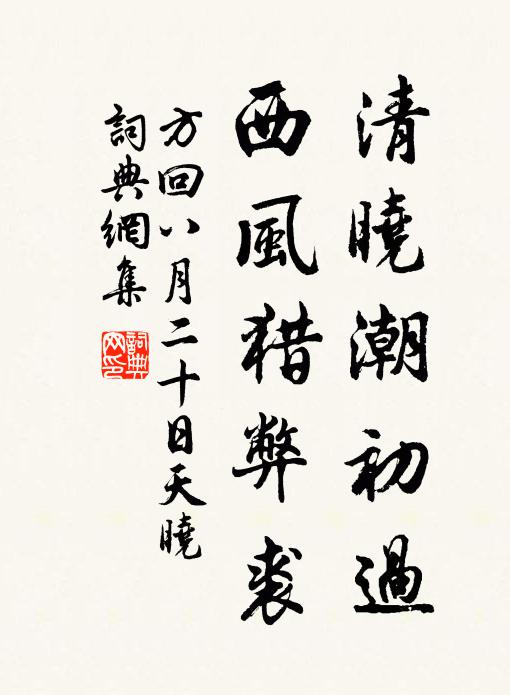 清曉潮初過
西風猎弊裘
方回八月二十日天曉
詞典網集
詞典網印